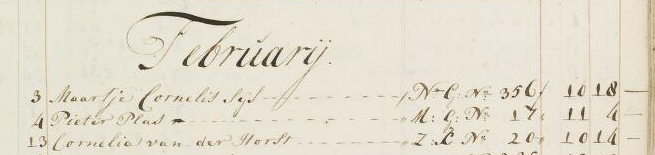 Februarÿ.
3 Maartje Cornelis Sijs - - - - - - - - - „ N: G: No 356 „ 10 18 —
4 Pieter Plas - - - - - - - - - „ M: G: No 17 „ 11 4 —
13 Cornelia van der Horst - - - - - - - „ Z: No 20 „ 10 14 —